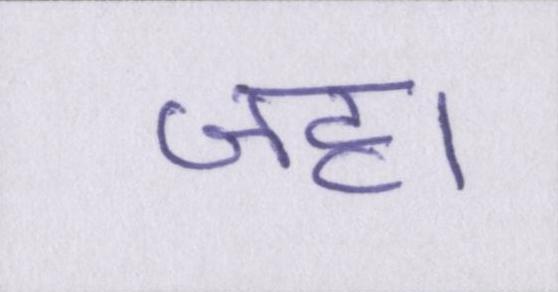 जहा